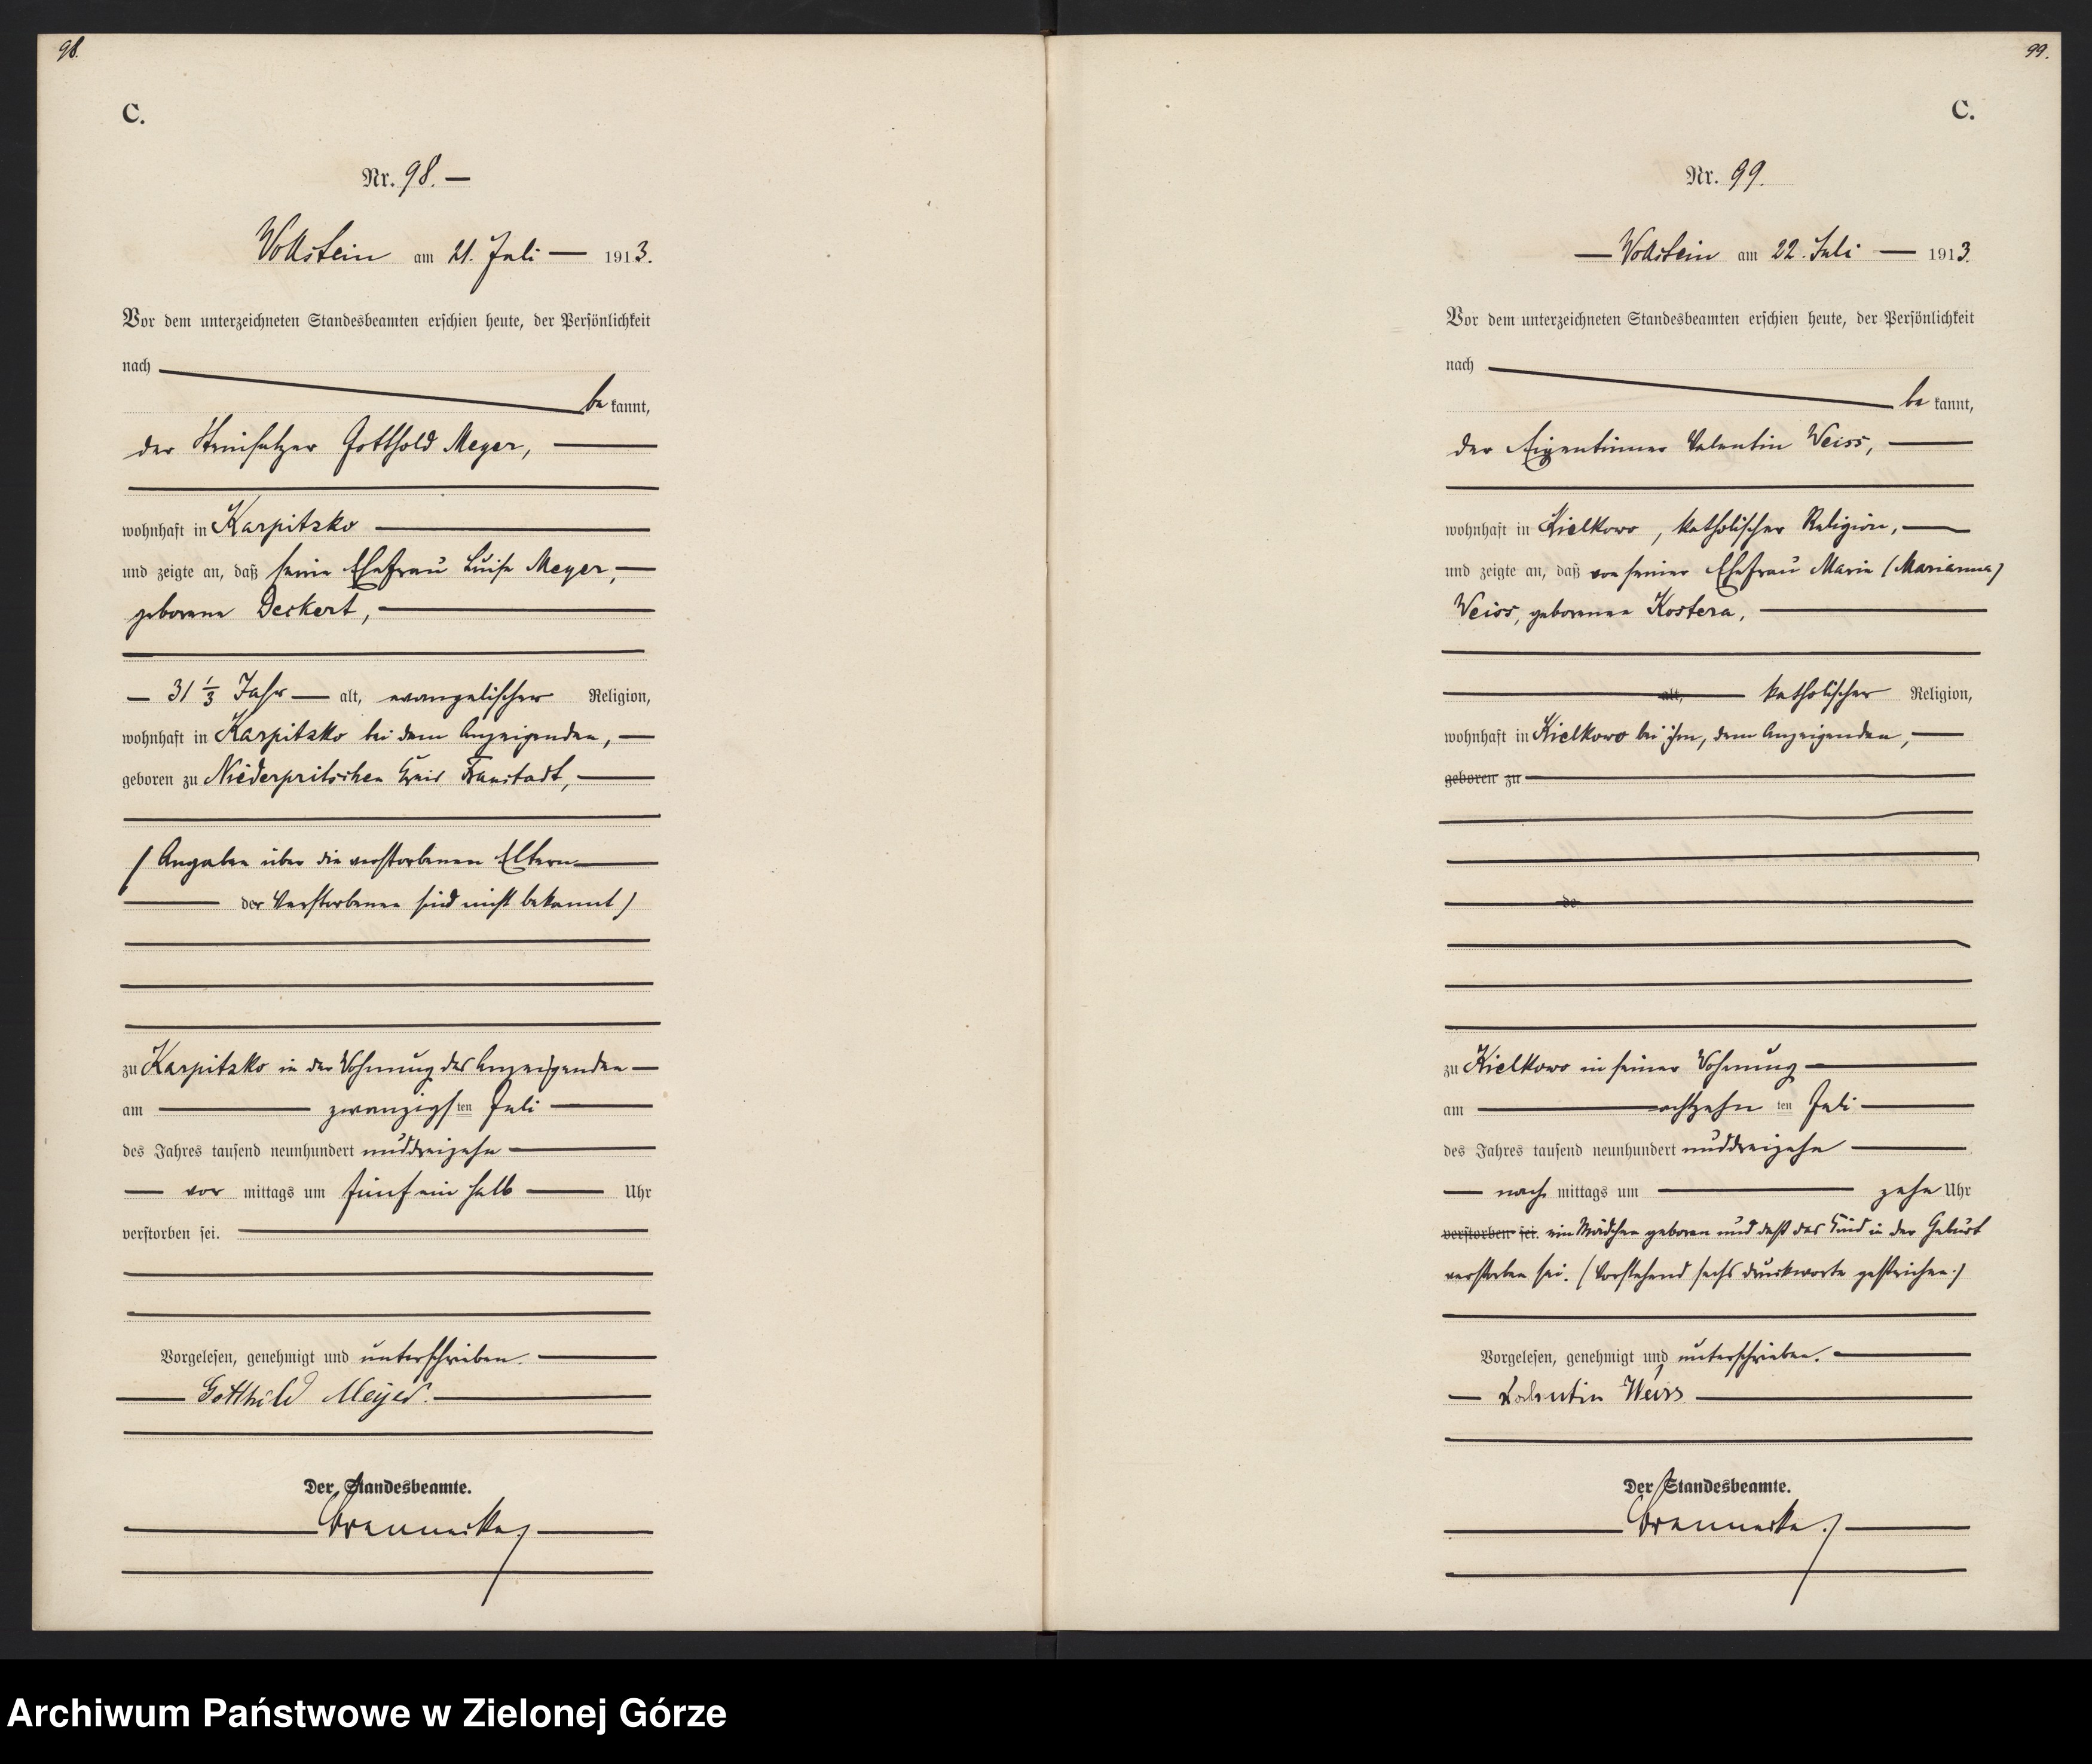 98.
C.
Nr. 98. —
Wollstein am 21. Juli — 1913.
Vor dem unterzeichneten Standesbeamten erschien heute, der Persönlichkeit
nach
be kannt,
der Steinsetzer Gotthold Meyer,
wohnhaft in Karpitzko
und zeigte an, daß seine Ehefrau Luise Meyer,
geborene Deckert,
— 31 1/3 Jahr — alt, evangelischer Religion,
wohnhaft in Karpitzko bei dem Anzeigenden,
geboren zu Niederpritschen Kreis Fraustadt,
(Angaben über die verstorbenen Eltern
der Verstorbenen sind nicht bekannt)
zu Karpitzko in der Wohnung des Anzeigenden
am zwanzigsten Juli
des Jahres tausend neunhundert unddreizehn
vor mittags um fünf ein halb Uhr
verstorben sei.
Vorgelesen, genehmigt und unterschrieben.
Gotthold Meyer.
Der Standesbeamte.
99.
C.
Nr. 99.
— Wollstein am 22. Juli — 1913.
Vor dem unterzeichneten Standesbeamten erschien heute, der Persönlichkeit
nach
be kannt,
der Eigentümer Valentin Weiss,
wohnhaft in Kielkowo, katholischer Religion,
und zeigte an, daß von seiner Ehefrau Marie (Marianna)
Weiss, geborenen Kostera,
alt, katholischer Religion,
wohnhaft in Kielkowo bei ihm, dem Anzeigenden,
geboren zu
de
zu Kielkowo in seiner Wohnung
am achtzehn ten Juli
des Jahres tausend neunhundert unddreizehn
nach mittags um zehn Uhr
verstorben sei. ein Mädchen geboren und daß das Kind in der Geburt
verstorben sei. (Vorstehend sechs Druckworte gestrichen.)
Vorgelesen, genehmigt und unterschrieben.
Valentin Weiss
Der Standesbeamte.
Archiwum Państwowe w Zielonej Górze